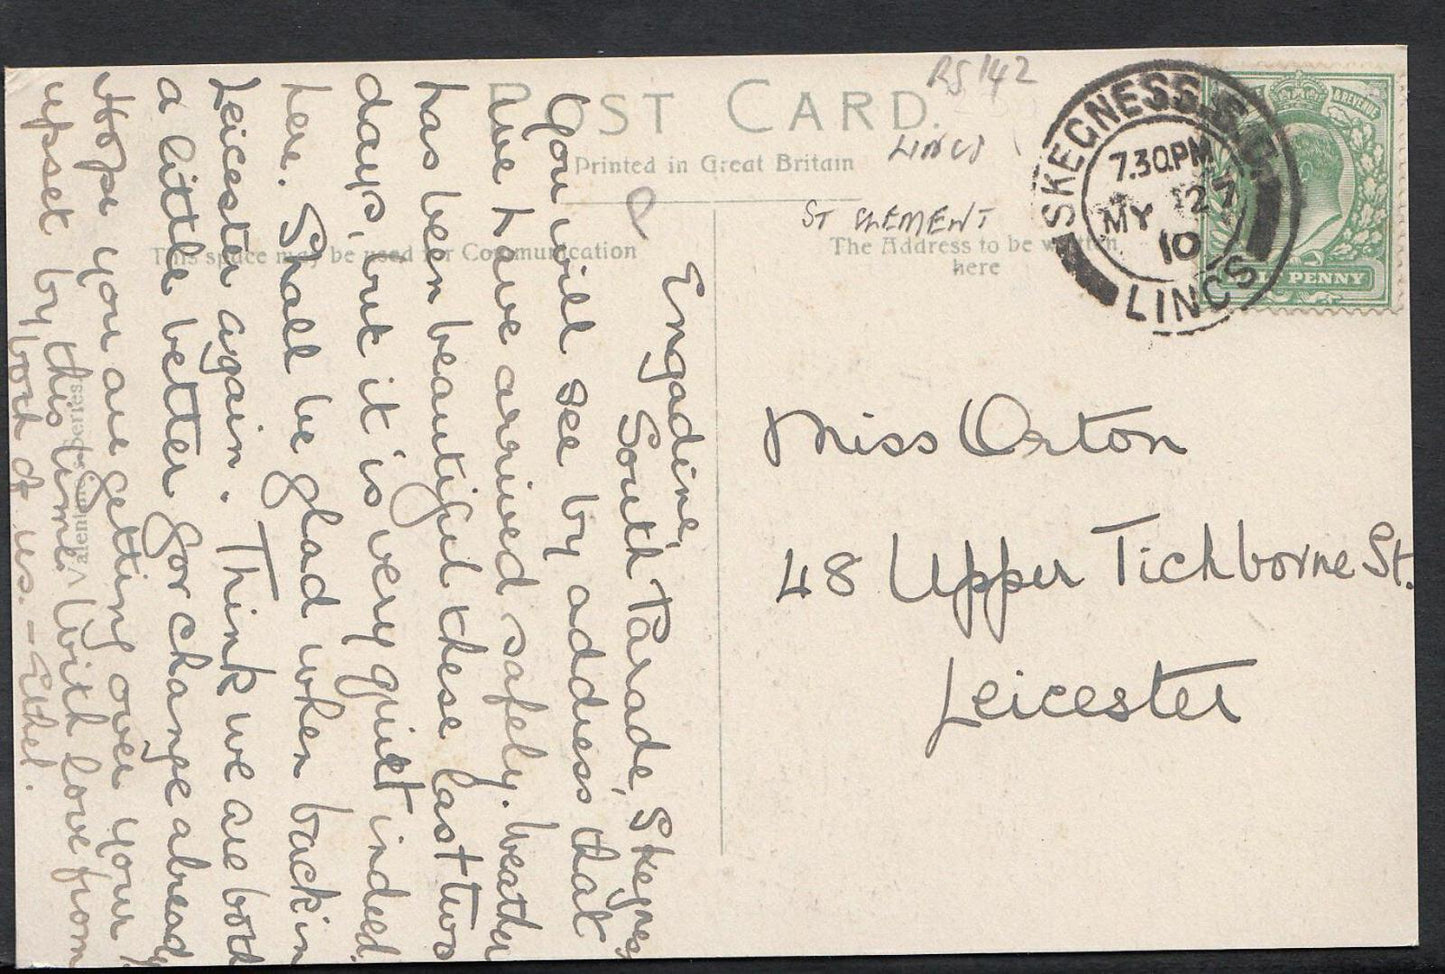 POST CARD.
Printed in Great Britain
RS 142
LINCS
ST CLEMENT
This space may be used for Communication
The Address to be written
here
SKEGNESS S.O.
7.30PM
MY 27
10
LINCS
& REVENUE
PENNY
Valentine's Series
Engadine,
South Parade, Skegness
You will see by address that
we have arrived safely. Weather
has been beautiful these last two
days, but it is very quiet indeed
here. Shall be glad when back in
Leicester again. Think we are both
a little better for change already
Hope you are getting over your
upset by this time. With love from
both of us. - Ethel.
Miss Orton
48 Upper Tichborne St.
Leicester